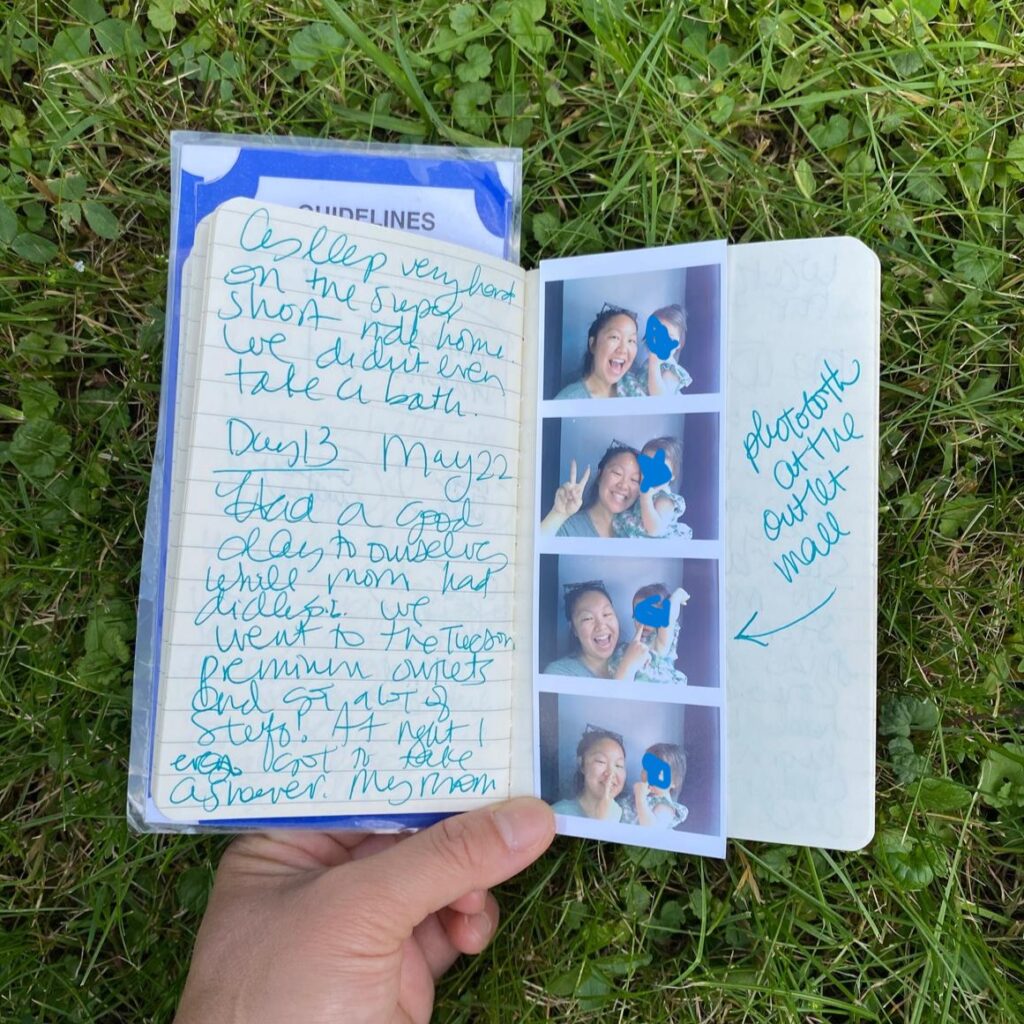 GUIDELINES
asleep very hard
on the super
short ride home.
We didn't even
take a bath.
Day 13 May 22
Had a good
day to ourselves
while mom had
dialysis. We
went to the Tucson
premium outlets
and got a lot of
stuff! At night I
even got to take
a shower. My mom
photobooth
at the
outlet
mall